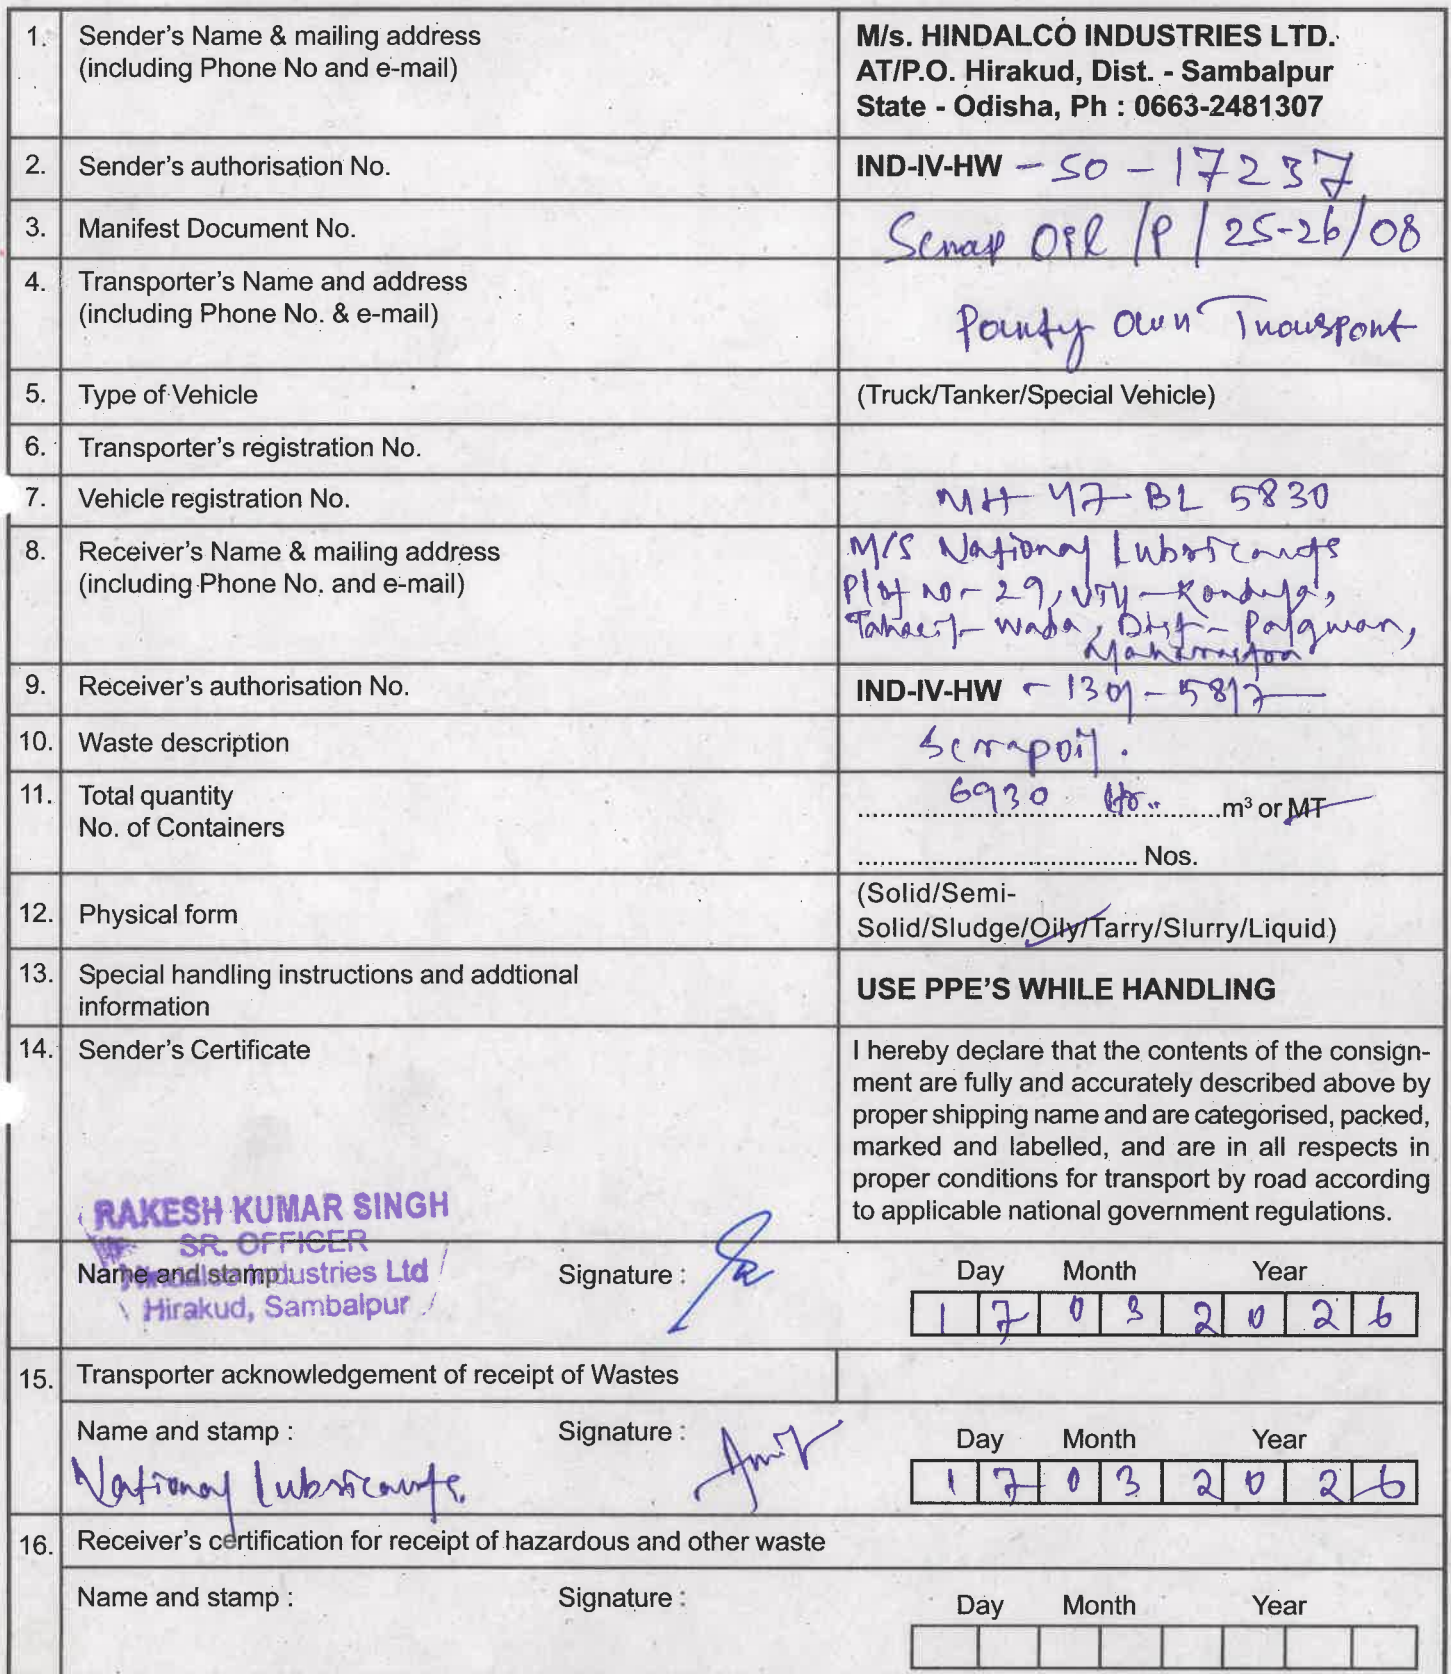 1. Sender's Name & mailing address
(including Phone No and e-mail)
M/s. HINDALCO INDUSTRIES LTD.
AT/P.O. Hirakud, Dist. - Sambalpur
State - Odisha, Ph : 0663-2481307
2. Sender's authorisation No.
IND-IV-HW - SO - 17237
3. Manifest Document No.
Scrap Oil /P / 25-26/08
4. Transporter's Name and address
(including Phone No. & e-mail)
Party own Transport
5. Type of Vehicle
(Truck/Tanker/Special Vehicle)
6. Transporter's registration No.
7. Vehicle registration No.
MH 47 BL 5830
8. Receiver's Name & mailing address
(including Phone No. and e-mail)
M/S National Lubricants
Plot no - 29,
Wada, Dist -
Maharrastra
9. Receiver's authorisation No.
IND-IV-HW
10. Waste description
Scrapoil.
11. Total quantity
No. of Containers
6930 m³ or MT
Nos.
12. Physical form
(Solid/Semi-
Solid/Sludge/Oily/Tarry/Slurry/Liquid)
13. Special handling instructions and addtional
information
USE PPE'S WHILE HANDLING
14. Sender's Certificate
I hereby declare that the contents of the consign-
ment are fully and accurately described above by
proper shipping name and are categorised, packed,
marked and labelled, and are in all respects in
proper conditions for transport by road according
to applicable national government regulations.
RAKESH KUMAR SINGH
SR. OFFICER
Hindalco Industries Ltd
Hirakud, Sambalpur
Name and stamp
Signature :
Day Month Year
1 7 0 3 2 0 2 6
15. Transporter acknowledgement of receipt of Wastes
Name and stamp :
National Lubricants.
Signature : Amit
Day Month Year
1 7 0 3 2 0 2 6
16. Receiver's certification for receipt of hazardous and other waste
Name and stamp :
Signature :
Day Month Year